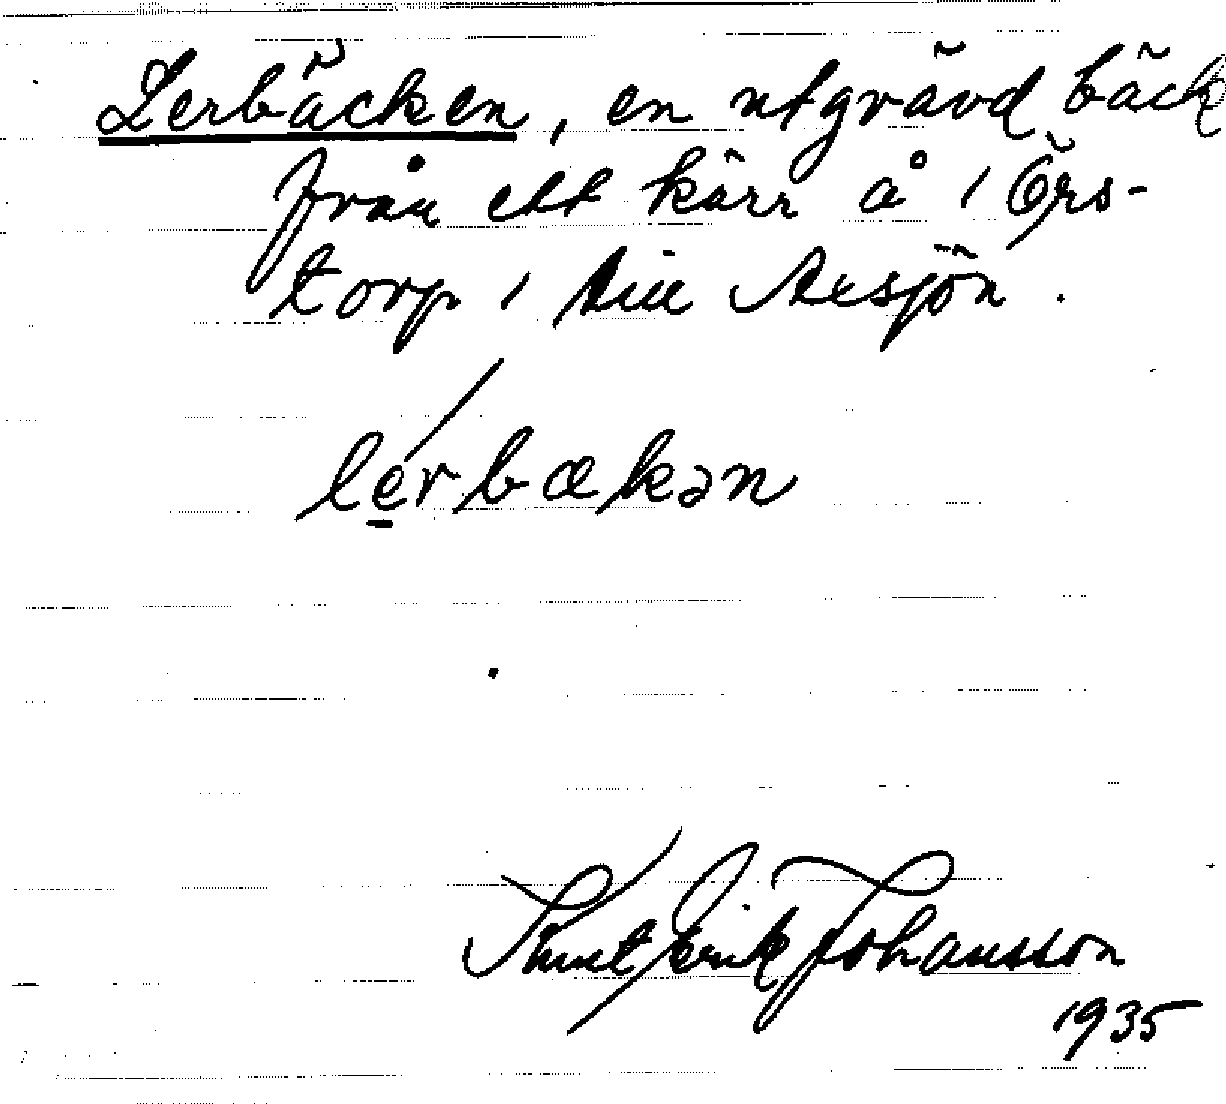 Lerbäcken, en utgrävd bäck
från ett kärr å / Örs-
torp / till Axsjön.
lerbækən
Knut Erik Johansson
1935